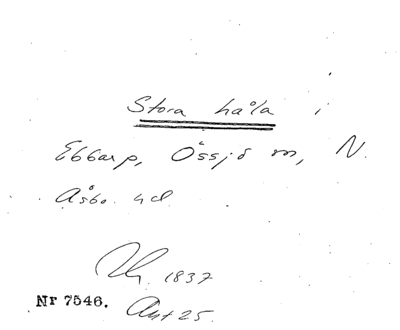 Stora håla i
Ebbarp, Össjö sn, N.
Åsbo hd.
1837
Nr 7546.
25